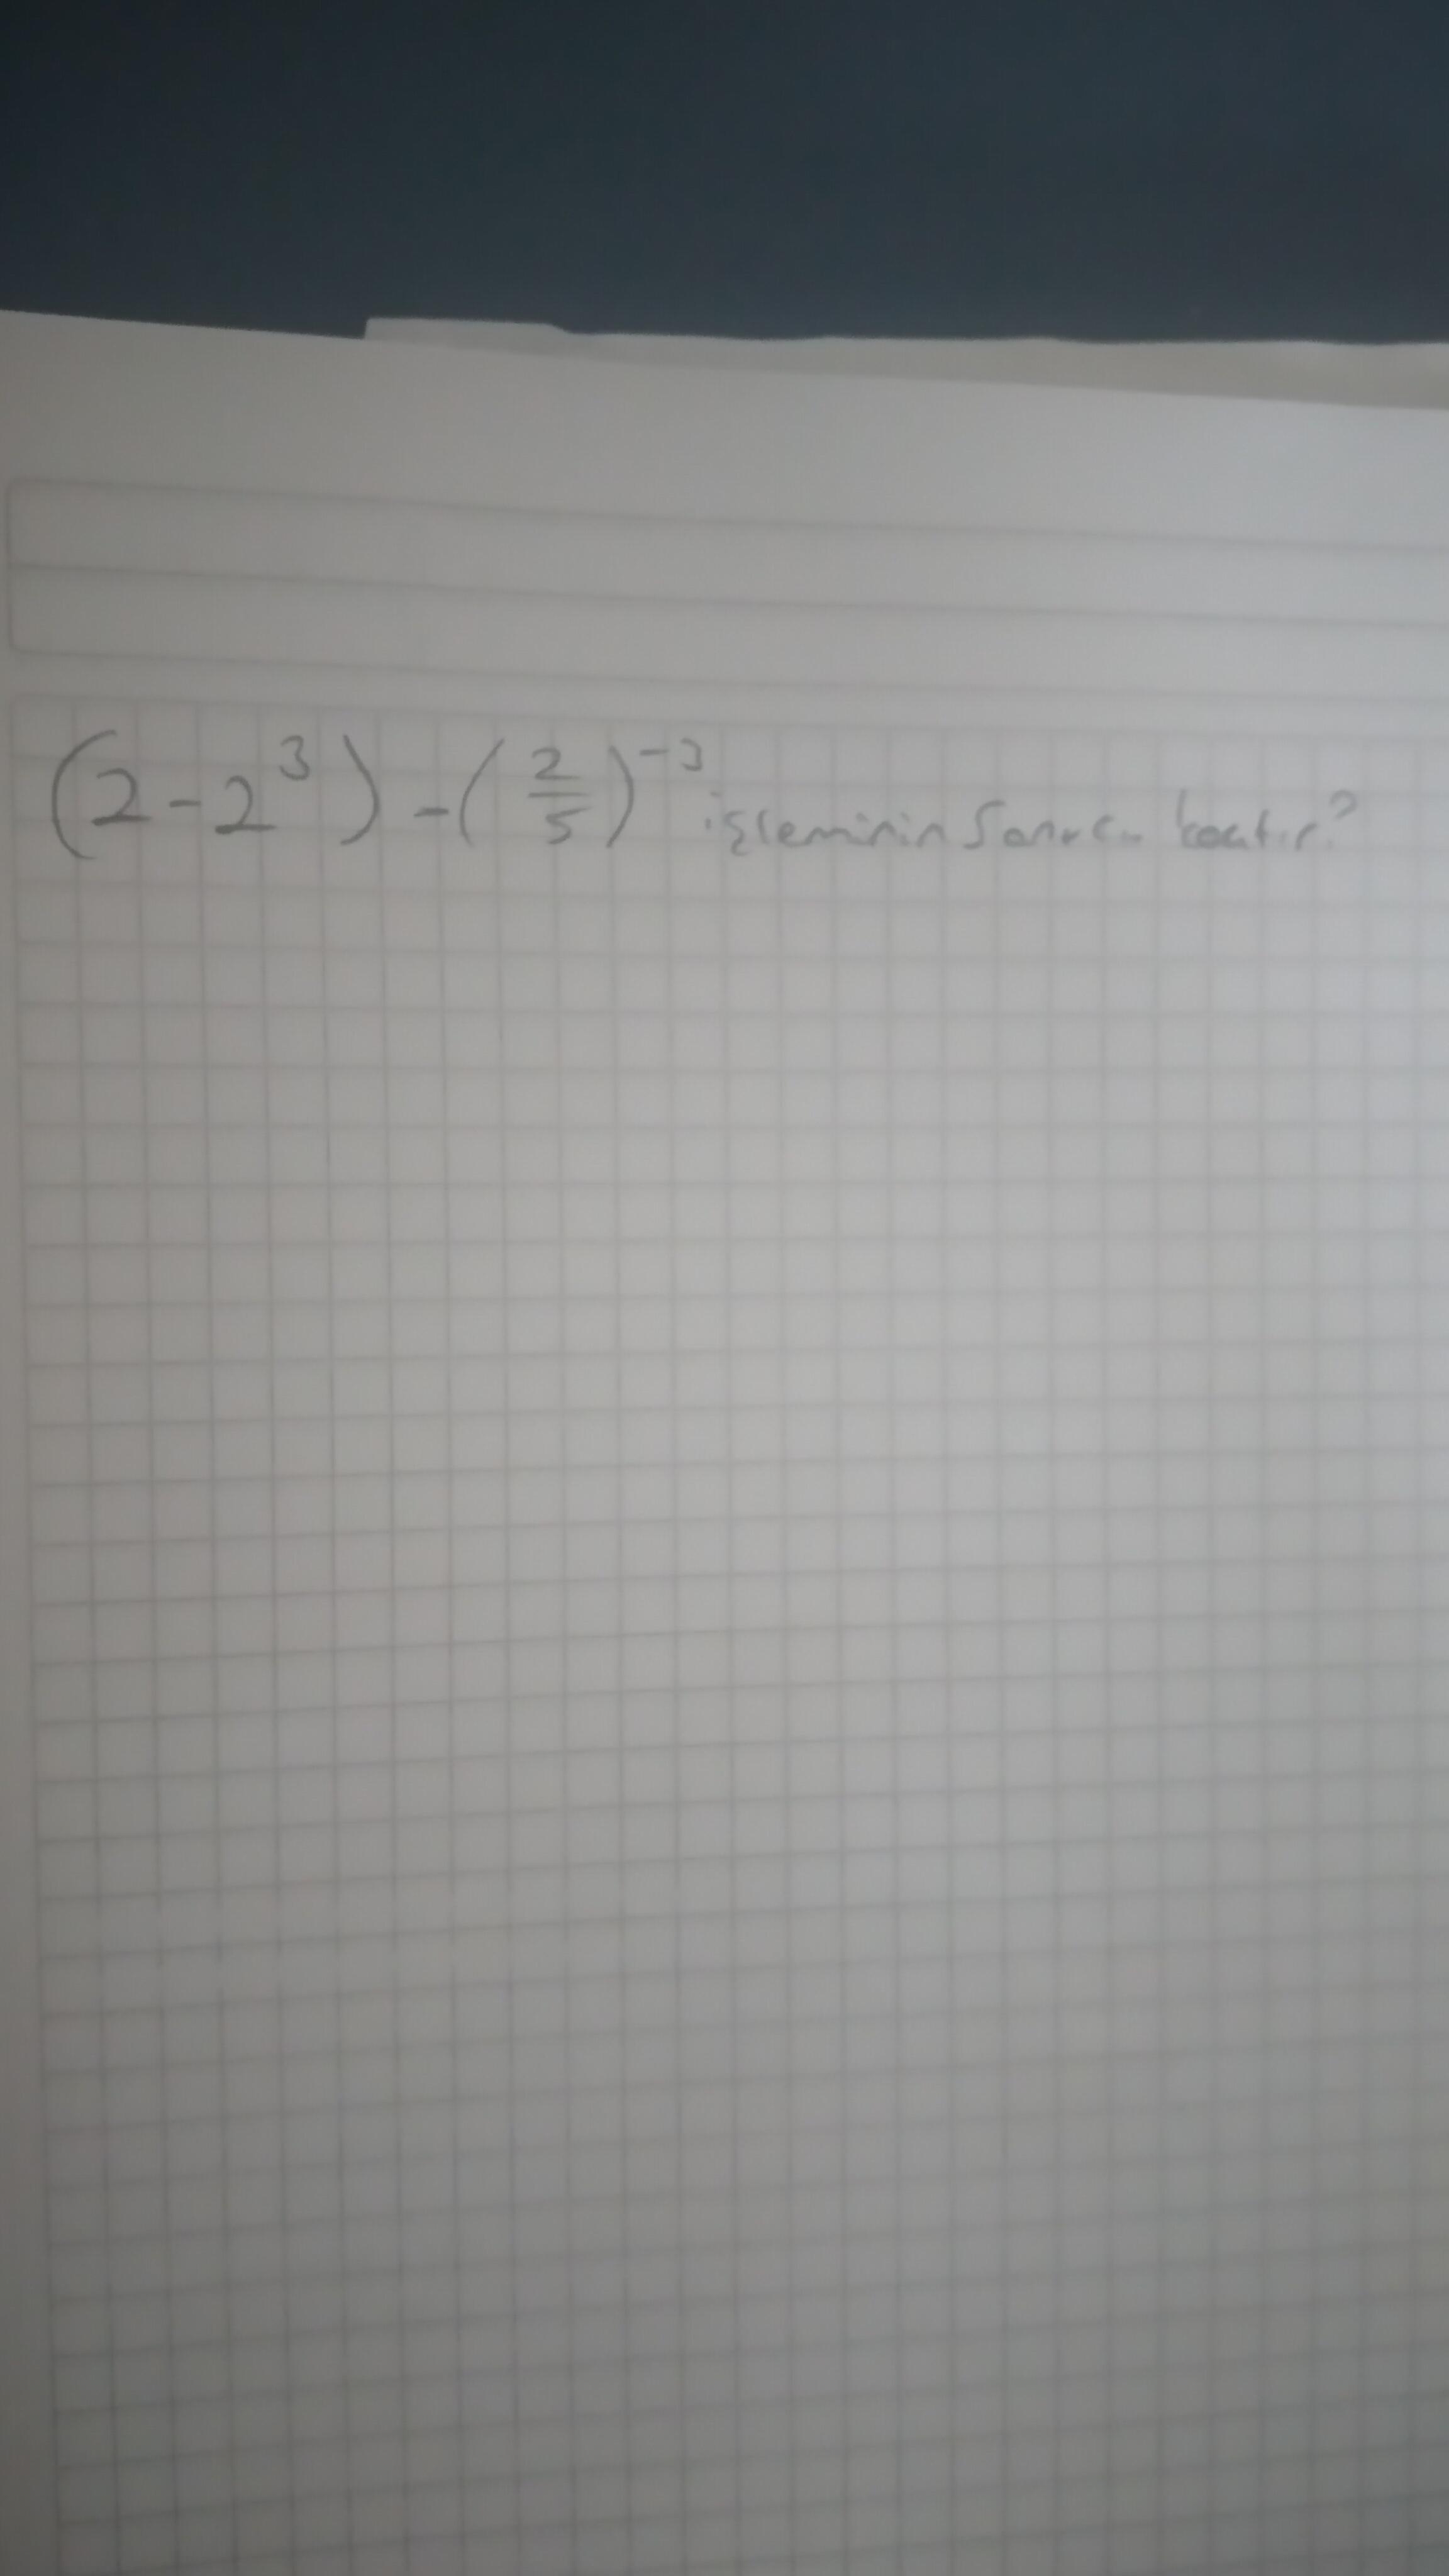 (2-2³)-(2/5)⁻³ işleminin Sonucu kaçtır?